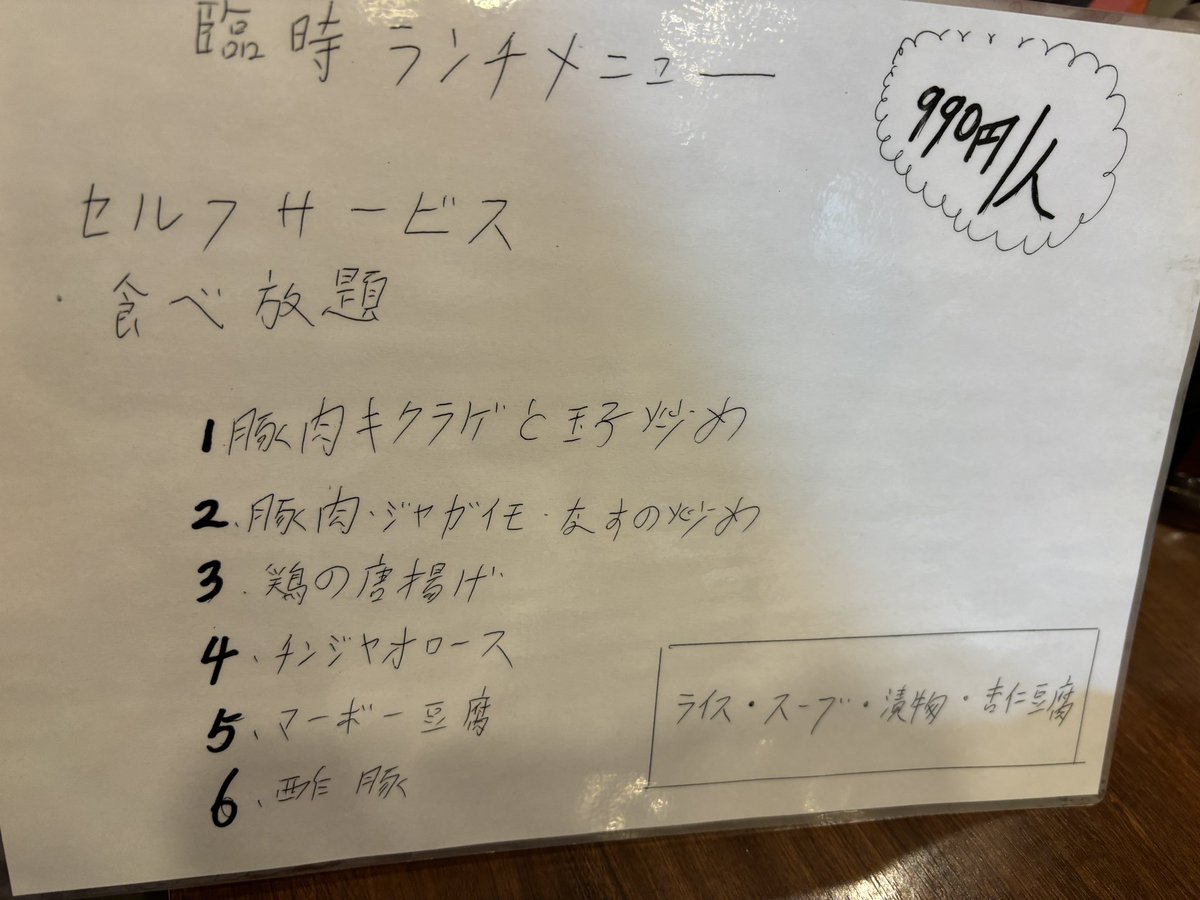 臨時 ランチメニュー
990円/人
セルフサービス
食べ放題
1 豚肉キクラゲと玉子炒め
2、豚肉・ジャガイモ・なすの炒め
3、鶏の唐揚げ
4、チンジャオロース
5、マーボー豆腐
6、酢豚
ライス・スープ・漬物・杏仁豆腐